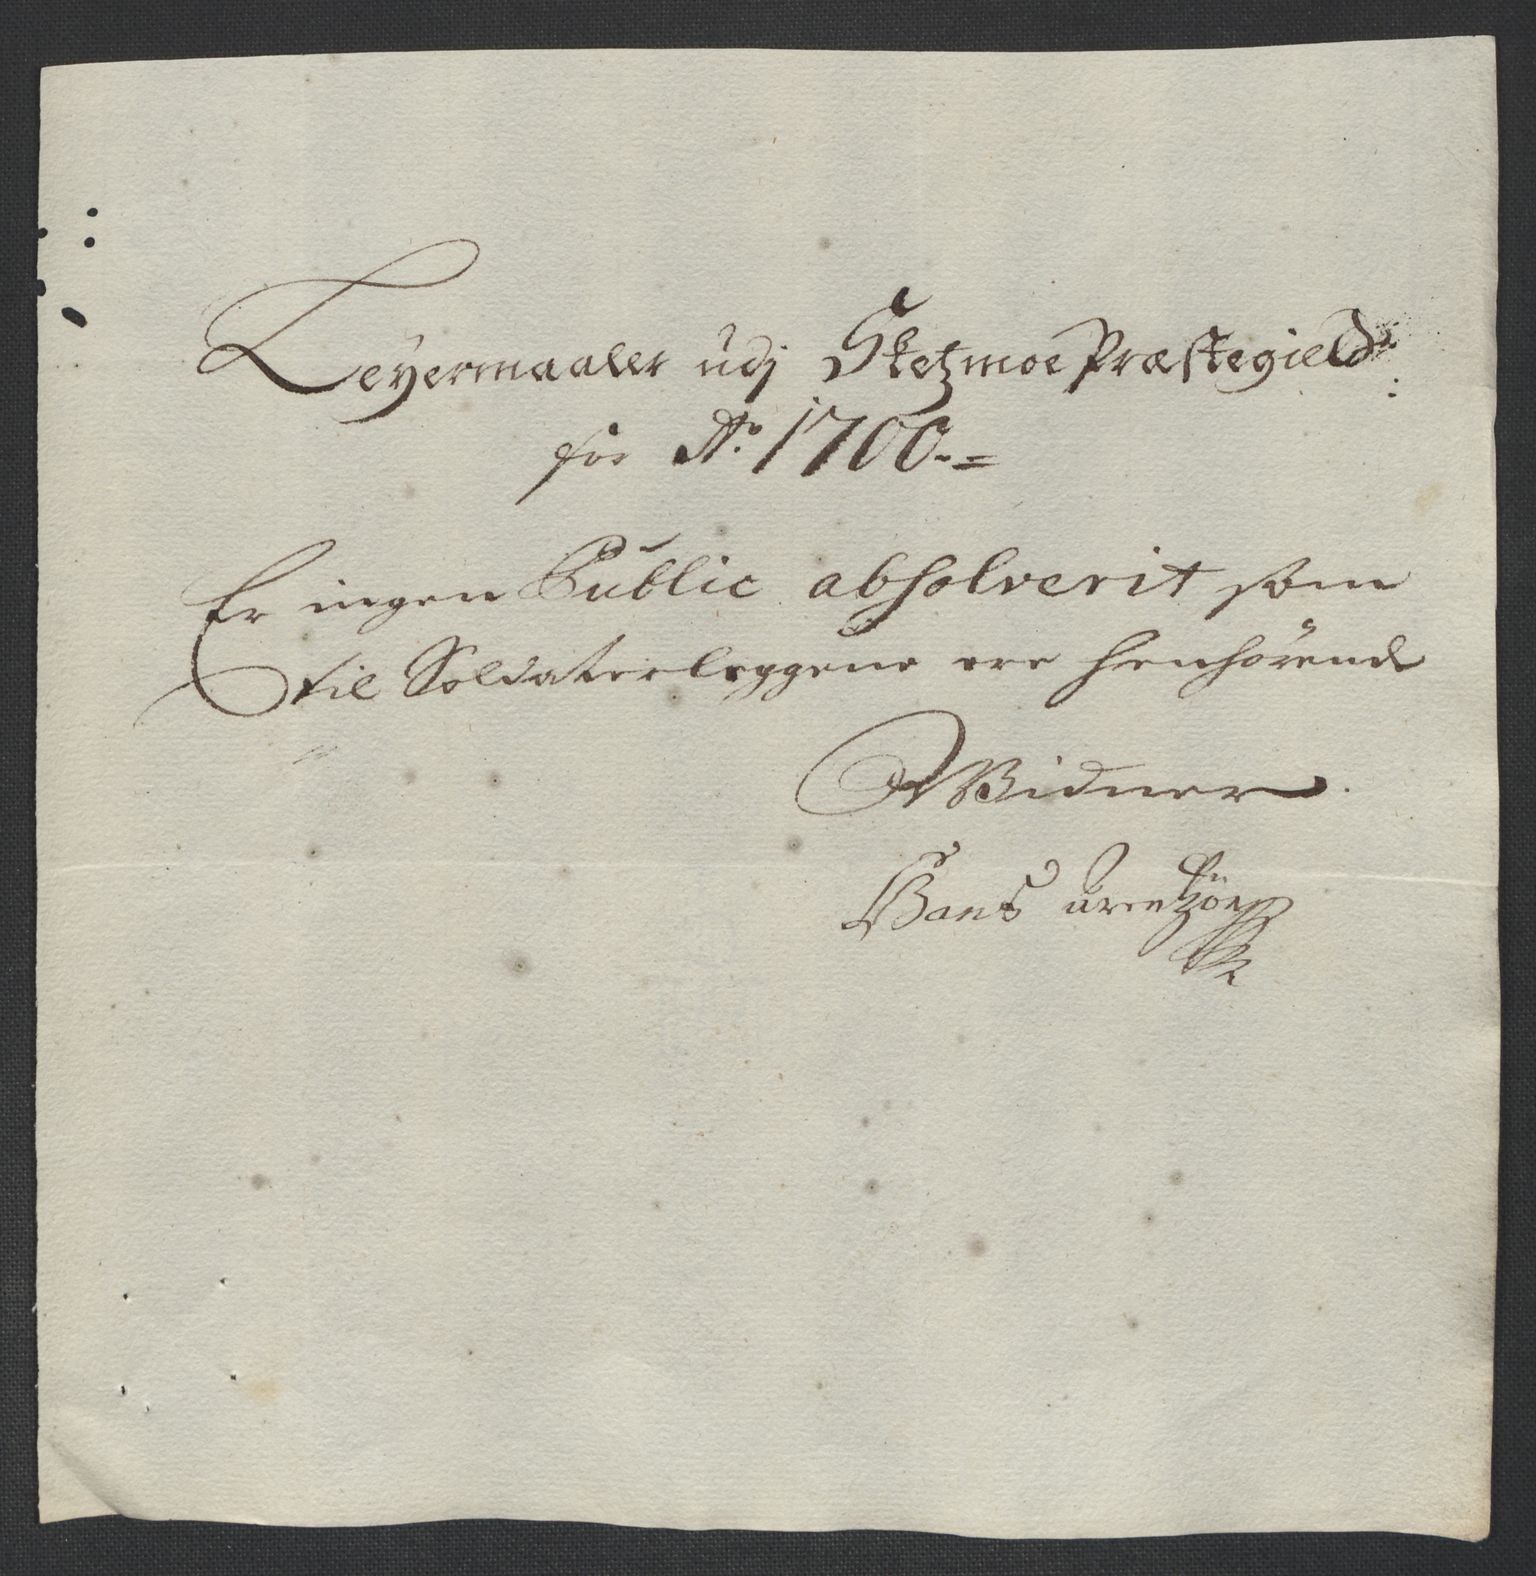 Leyermaaler udj Sketzmoe Præstegield
for Ao. 1700.-=
Er ingen Public absolverit som
til Soldaterleggene ere henhörende
Widner.
Hans